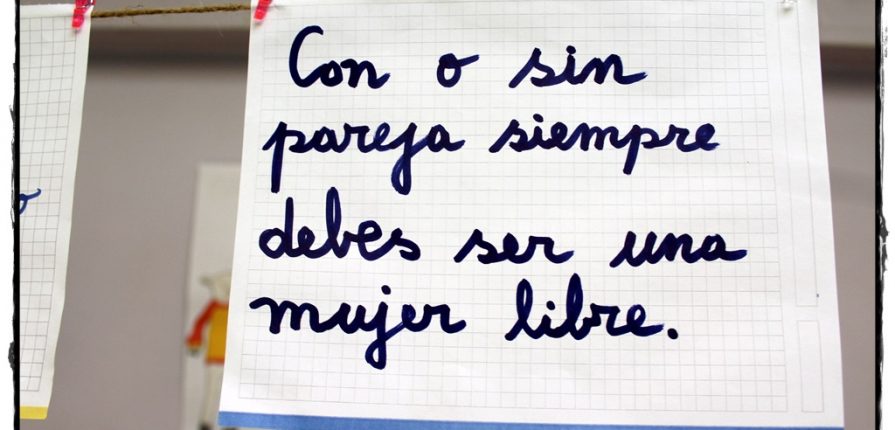 Con o sin
pareja siempre
debes ser una
mujer libre.